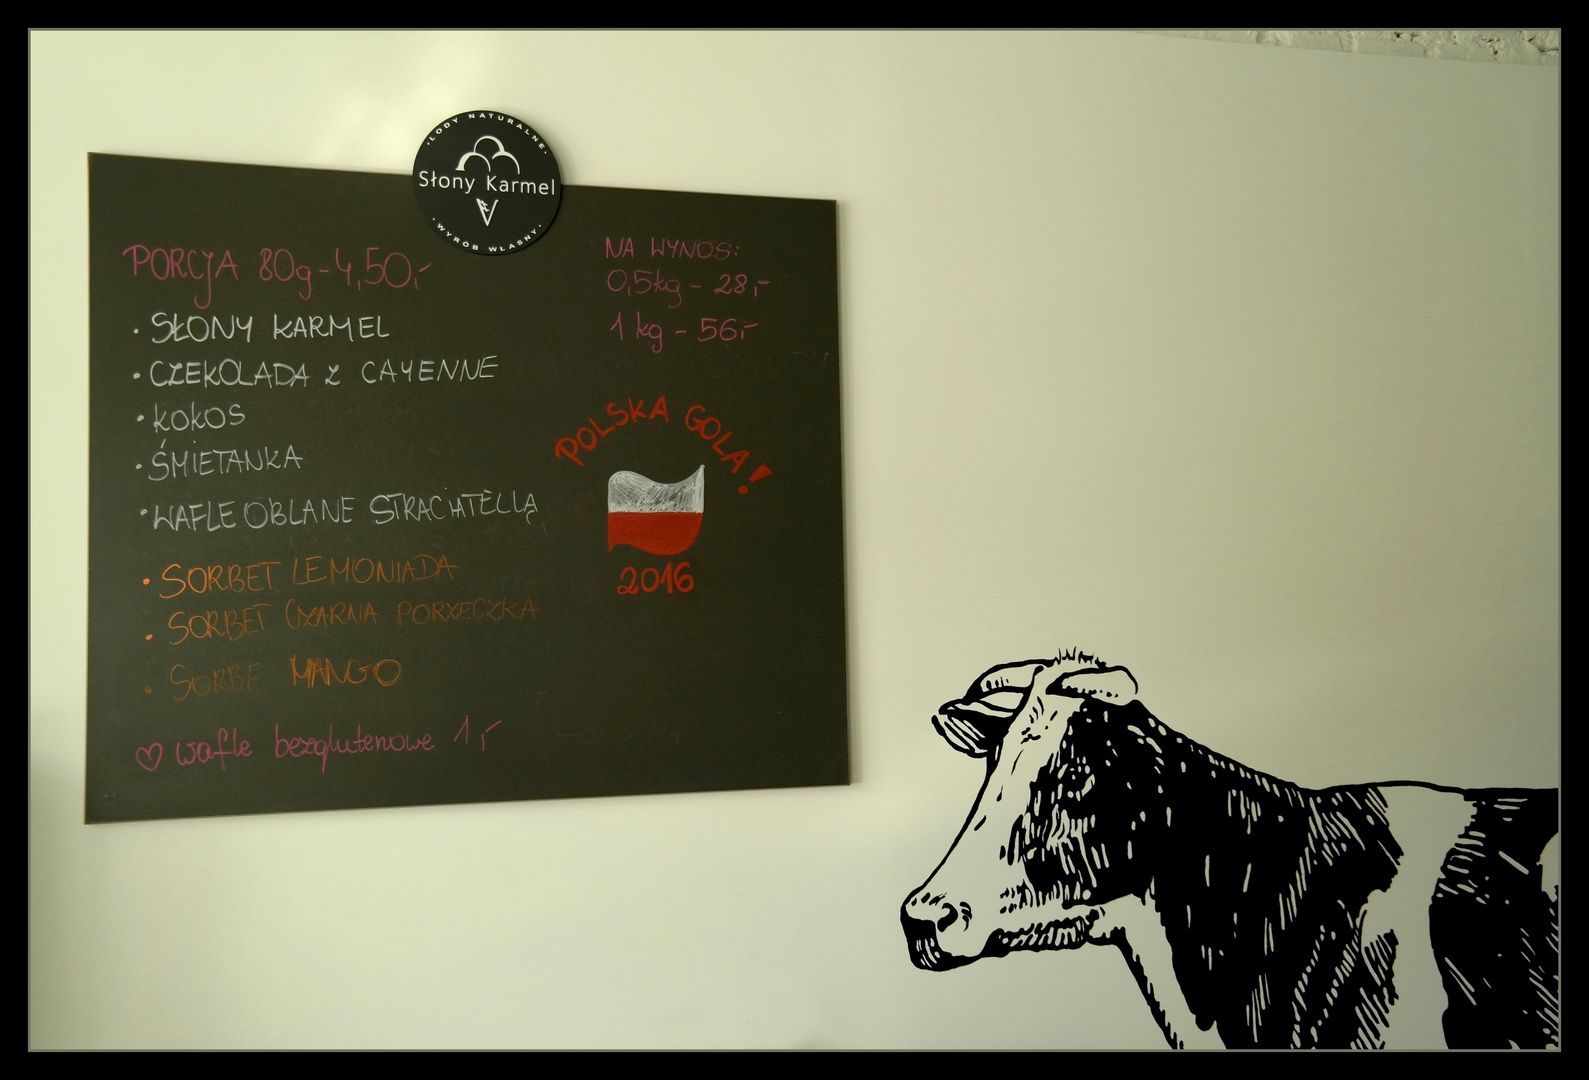 · LODY NATURALNE ·
Słony Karmel
· WYRÓB WŁASNY ·
PORCJA 80g - 4,50,-
· SŁONY KARMEL
· CZEKOLADA Z CAYENNE
· KOKOS
· ŚMIETANKA
· WAFLE OBLANE STRACIATELLĄ
· SORBET LEMONIADA
· SORBET CZARNA PORZECZKA
· SORBE MANGO
♡ wafle bezglutenowe 1,-
NA WYNOS:
0,5kg - 28,-
1 kg - 56,-
POLSKA GOLA!
2016